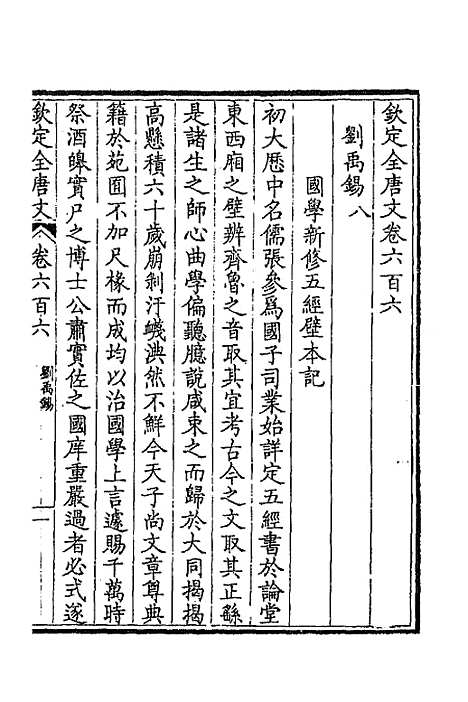 欽定全唐文卷六百六
劉禹錫八
國學新修五經壁本記
初大歷中名儒張參爲國子司業始詳定五經書於論堂
東西廂之壁辨齊魯之音取其宜考古今之文取其正繇
是諸生之師心曲學偏聽臆說咸束之而歸於大同揭揭
高懸積六十歲崩剝汙衊淟然不鮮今天子尚文章尊典
籍於苑囿不加尺椽而成均以治國學上言遽賜千萬時
祭酒皞實尸之博士公肅實佐之國庠重嚴過者必式遂
欽定全唐文 卷六百六 劉禹錫 一